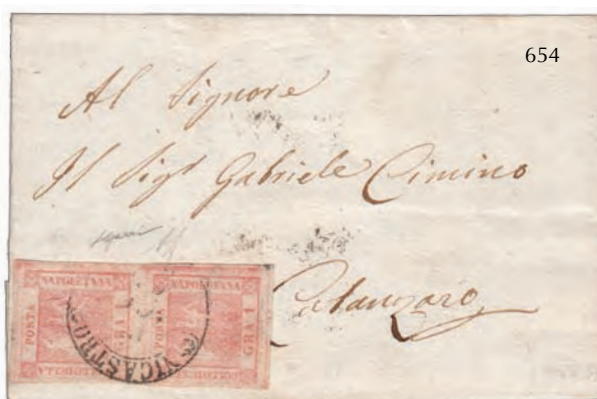 654
Al Signore
Il Sigr Gabriele Cimino
Catanzaro
NAPOLETANA NAPOLETANA
POSTA GRA 1 POSTA GRA 1
NICASTRO